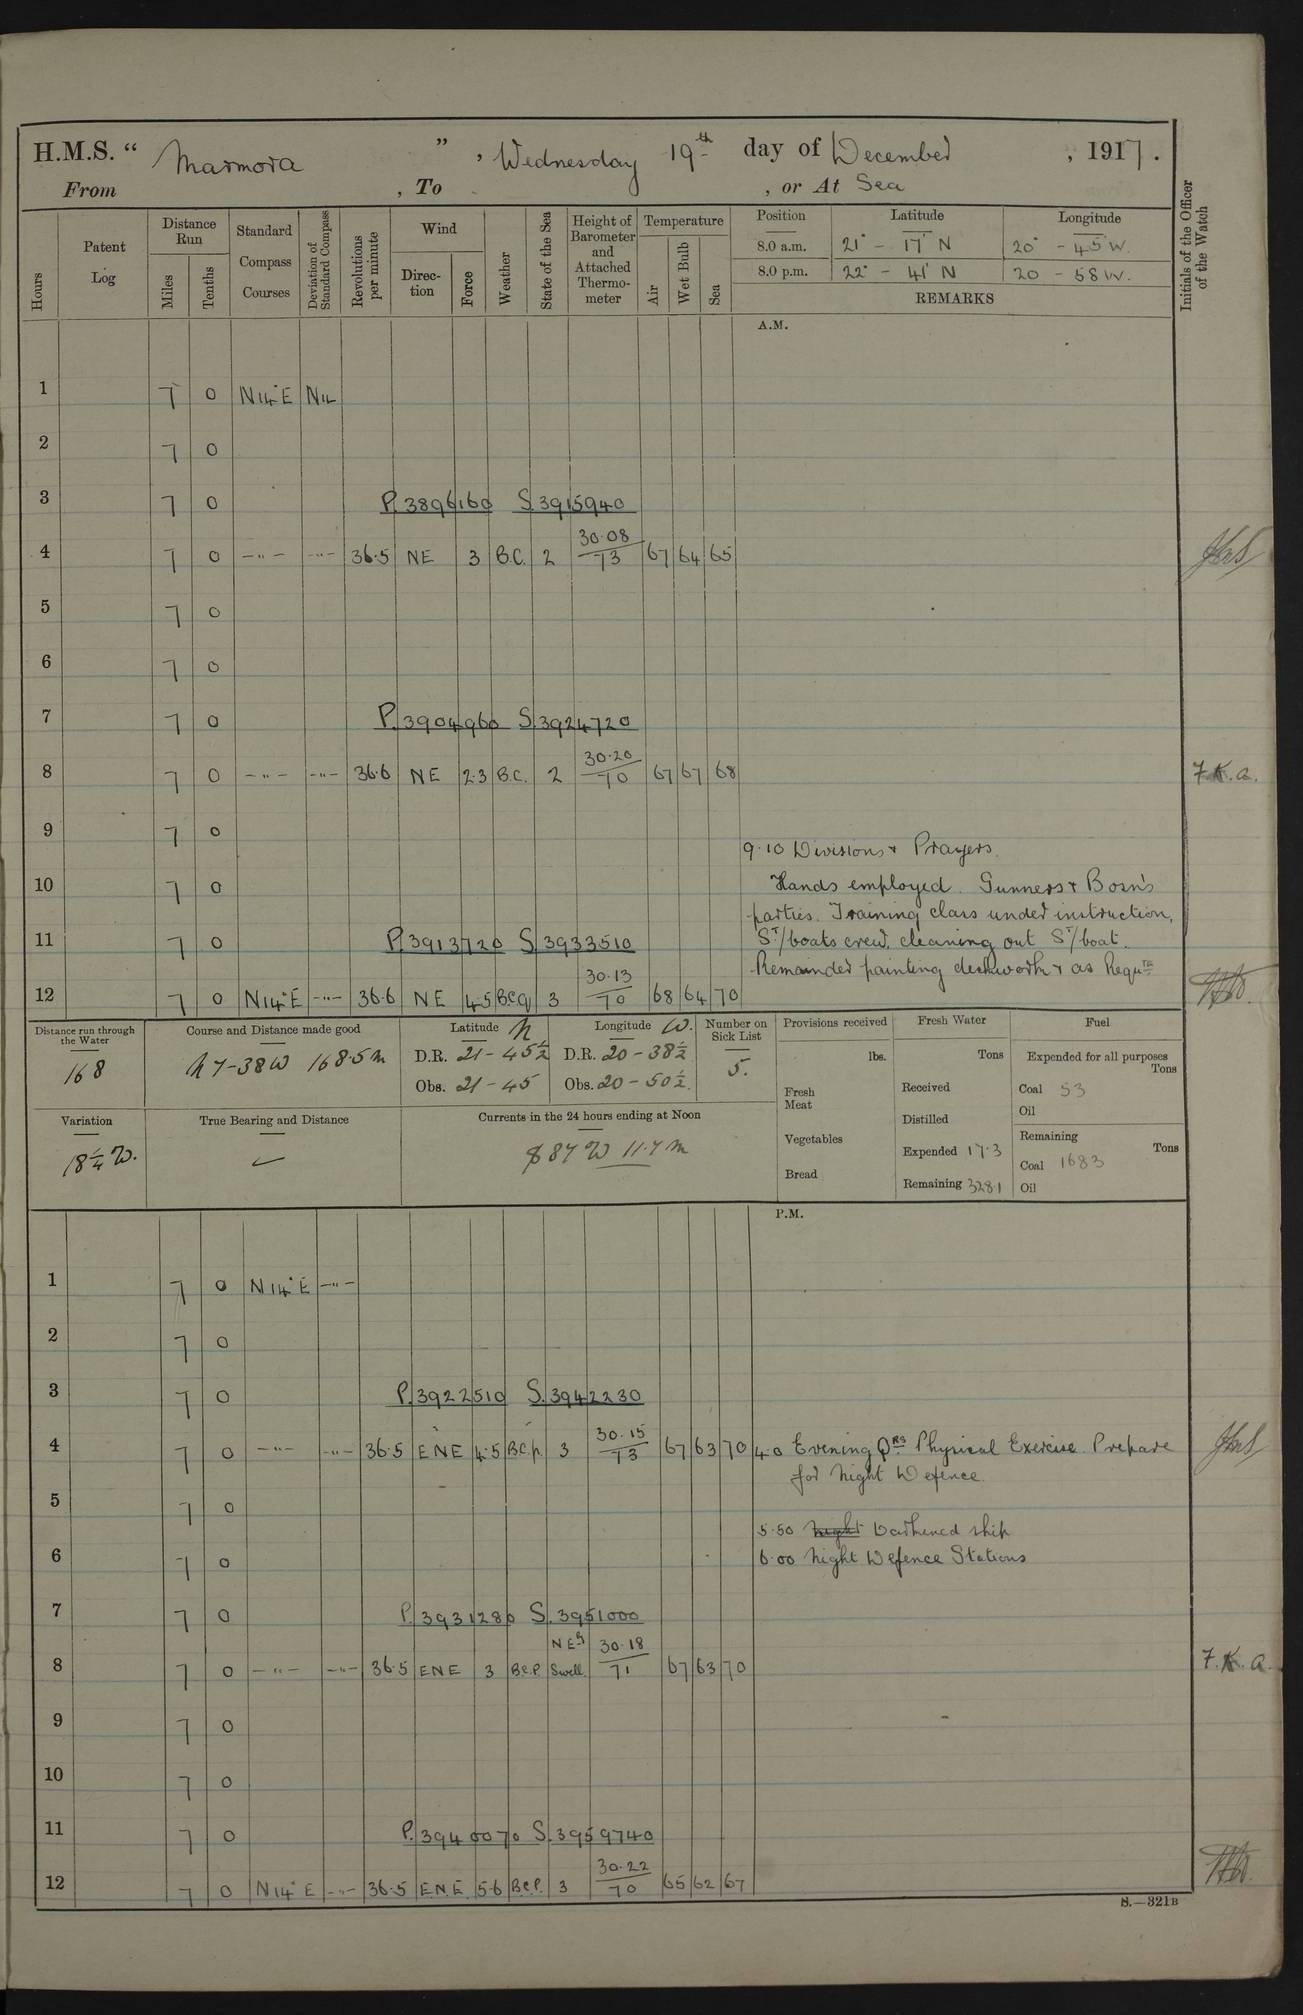 H.M.S. “ Marmora ” , Wednesday 19th day of December , 1917.
From , To , or At Sea
Hours
Patent Log
Distance Run
Miles
Tenths
Standard Compass Courses
Deviation of Standard Compass
Revolutions per minute
Wind
Direction
Force
Weather
State of the Sea
Height of Barometer and Attached Thermometer
Temperature
Air
Wet Bulb
Sea
Position Latitude Longitude
8.0 a.m. 21° - 17' N 20° - 45' W.
8.0 p.m. 22° - 41' N 20 - 58 W.
REMARKS
Initials of the Officer of the Watch
A.M.
1 7 0 N14°E NIL
2 7 0
3 7 0 P.3896160 S.3915940
4 7 0 -"- -"- 36.5 NE 3 B.C. 2 30.08/73 67 64 65
5 7 0
6 7 0
7 7 0 P.3904960 S.3924720
8 7 0 -"- -"- 36.6 NE 2.3 B.C. 2 30.20/70 67 67 68 F.K.a.
9 7 0
9.10 Divisions & Prayers.
10 7 0 Hands employed. Gunners & Bosn's
parties. Training class under instruction,
11 7 0 P.3913720 S.3933510 ST/boats crew, cleaning out ST/boat.
Remainder painting deckwork & as Requ
12 7 0 N14°E -"- 36.6 NE 4.5 BCq 3 30.13/70 68 64 70
Distance run through the Water
168
Course and Distance made good
N 7-38 W 168.5 m
Latitude N
D.R. 21-45½
Obs. 21-45
Longitude W.
D.R. 20-38½
Obs. 20-50½.
Number on Sick List
5.
Provisions received
lbs.
Fresh Meat
Vegetables
Bread
Fresh Water
Tons
Received
Distilled
Expended 17.3
Remaining 328.1
Fuel
Expended for all purposes
Tons
Coal 53
Oil
Remaining
Tons
Coal 1683
Oil
Variation
18¼ W.
True Bearing and Distance
Currents in the 24 hours ending at Noon
S 87 W 11.7 m
P.M.
1 7 0 N14°E -"-
2 7 0
3 7 0 P.3922510 S.3942230
4 7 0 -"- -"- 36.5 ENE 4.5 B.C.p. 3 30.15/73 67 63 70 4.0 Evening Qrs Physical Exercise. Prepare
for Night Defence.
5 7 0
5.50 Night Darkened ship
6 7 0 6.00 Night Defence Stations
7 7 0 P.3931280 S.3951000
8 7 0 -"- -"- 36.5 ENE 3 B.C.P. NEly Swell 30.18/71 67 63 70 F.K.a.
9 7 0
10 7 0
11 7 0 P.3940070 S.3959740
12 7 0 N14°E -"- 36.5 E.N.E. 5.6 B.C.P. 3 30.22/70 65 62 67
S.—321B